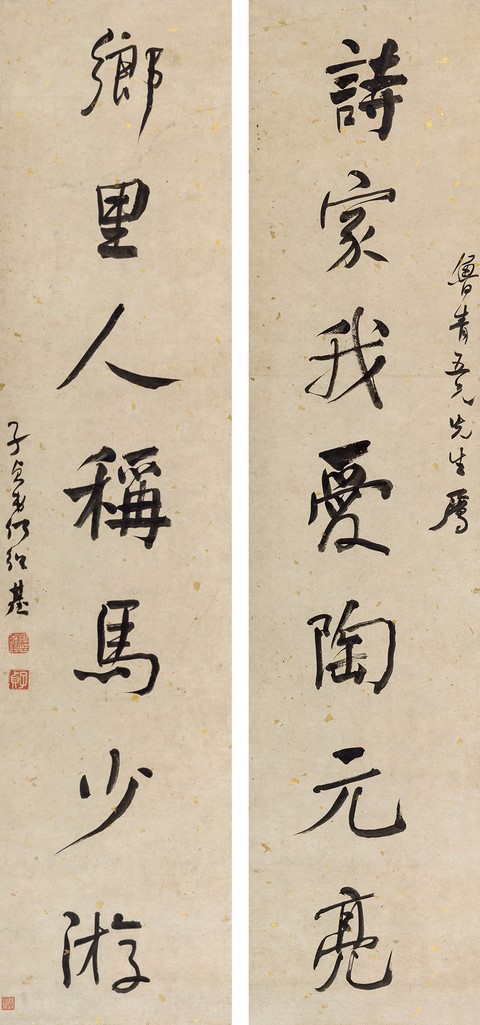 魯青五兄先生屬
詩家我愛陶元亮
鄉里人稱馬少游
子貞弟何紹基